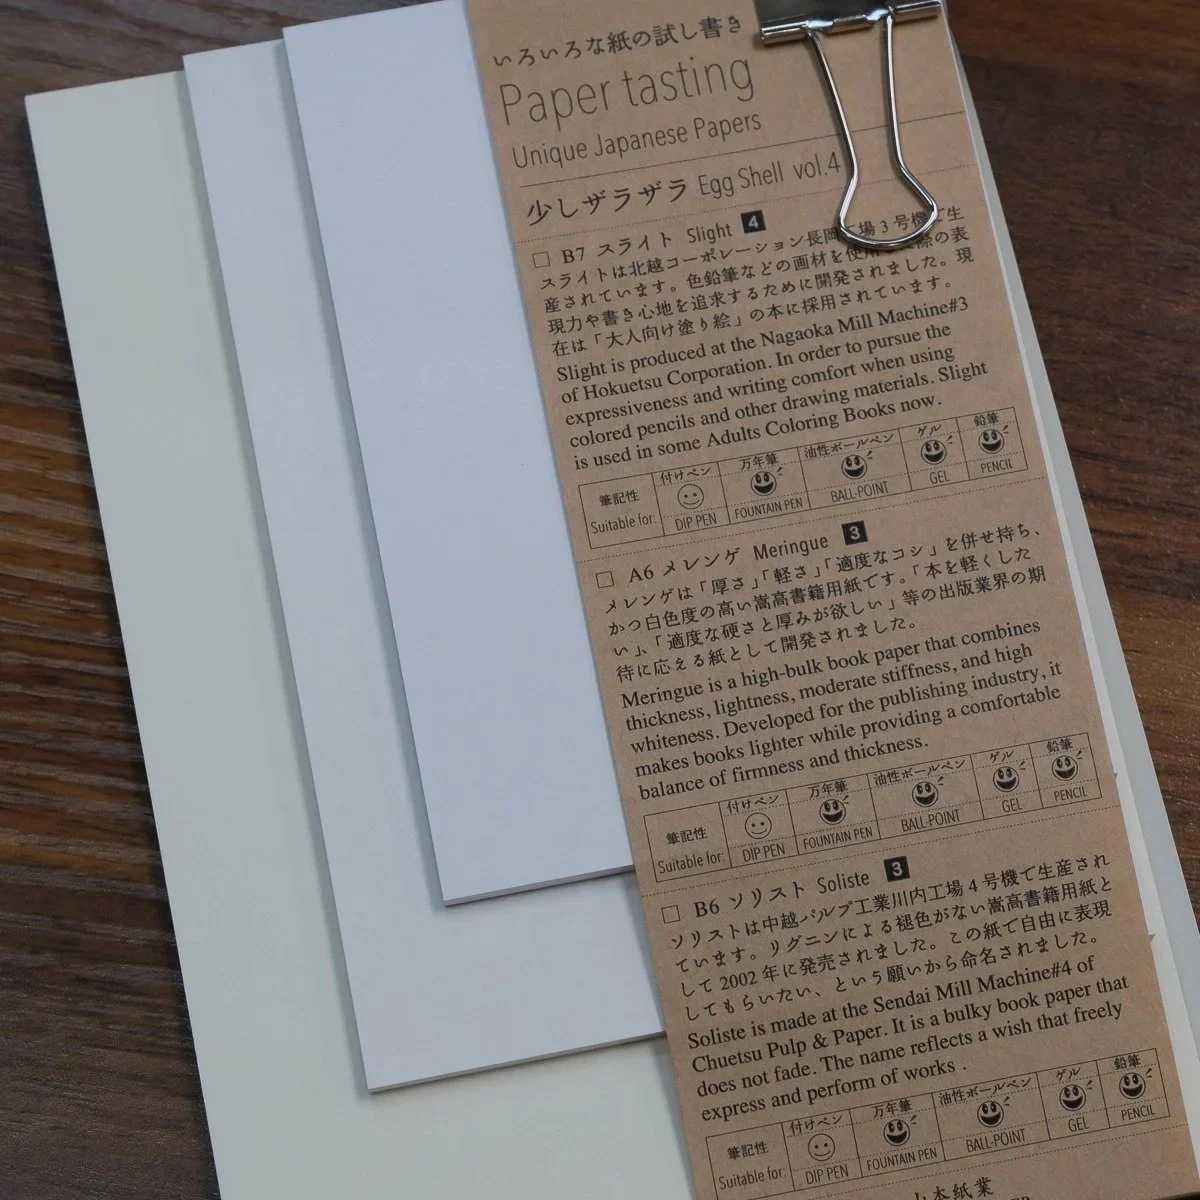 いろいろな紙の試し書き
Paper tasting
Unique Japanese Papers
少しザラザラ Egg Shell vol.4
□ B7 スライト Slight 4
スライトは北越コーポレーション長岡工場3号機で生
産されています。色鉛筆などの画材を使用 際の表
現力や書き心地を追求するために開発されました。現
在は「大人向け塗り絵」の本に採用されています。
Slight is produced at the Nagaoka Mill Machine#3
of Hokuetsu Corporation. In order to pursue the
expressiveness and writing comfort when using
colored pencils and other drawing materials. Slight
is used in some Adults Coloring Books now.
筆記性 付けペン 万年筆 油性ボールペン ゲル 鉛筆
Suitable for: DIP PEN FOUNTAIN PEN BALL-POINT GEL PENCIL
□ A6 メレンゲ Meringue 3
メレンゲは「厚さ」「軽さ」「適度なコシ」を併せ持ち、
かつ白色度の高い嵩高書籍用紙です。「本を軽くした
い」、「適度な硬さと厚みが欲しい」等の出版業界の期
待に応える紙として開発されました。
Meringue is a high-bulk book paper that combines
thickness, lightness, moderate stiffness, and high
whiteness. Developed for the publishing industry, it
makes books lighter while providing a comfortable
balance of firmness and thickness.
筆記性 付けペン 万年筆 油性ボールペン ゲル 鉛筆
Suitable for: DIP PEN FOUNTAIN PEN BALL-POINT GEL PENCIL
□ B6 ソリスト Soliste 3
ソリストは中越パルプ工業川内工場4号機で生産され
ています。リグニンによる褪色がない嵩高書籍用紙と
して2002年に発売されました。この紙で自由に表現
してもらいたい、という願いから命名されました。
Soliste is made at the Sendai Mill Machine#4 of
Chuetsu Pulp & Paper. It is a bulky book paper that
does not fade. The name reflects a wish that freely
express and perform of works .
筆記性 付けペン 万年筆 油性ボールペン ゲル 鉛筆
Suitable for: DIP PEN FOUNTAIN PEN BALL-POINT GEL PENCIL
山本紙業